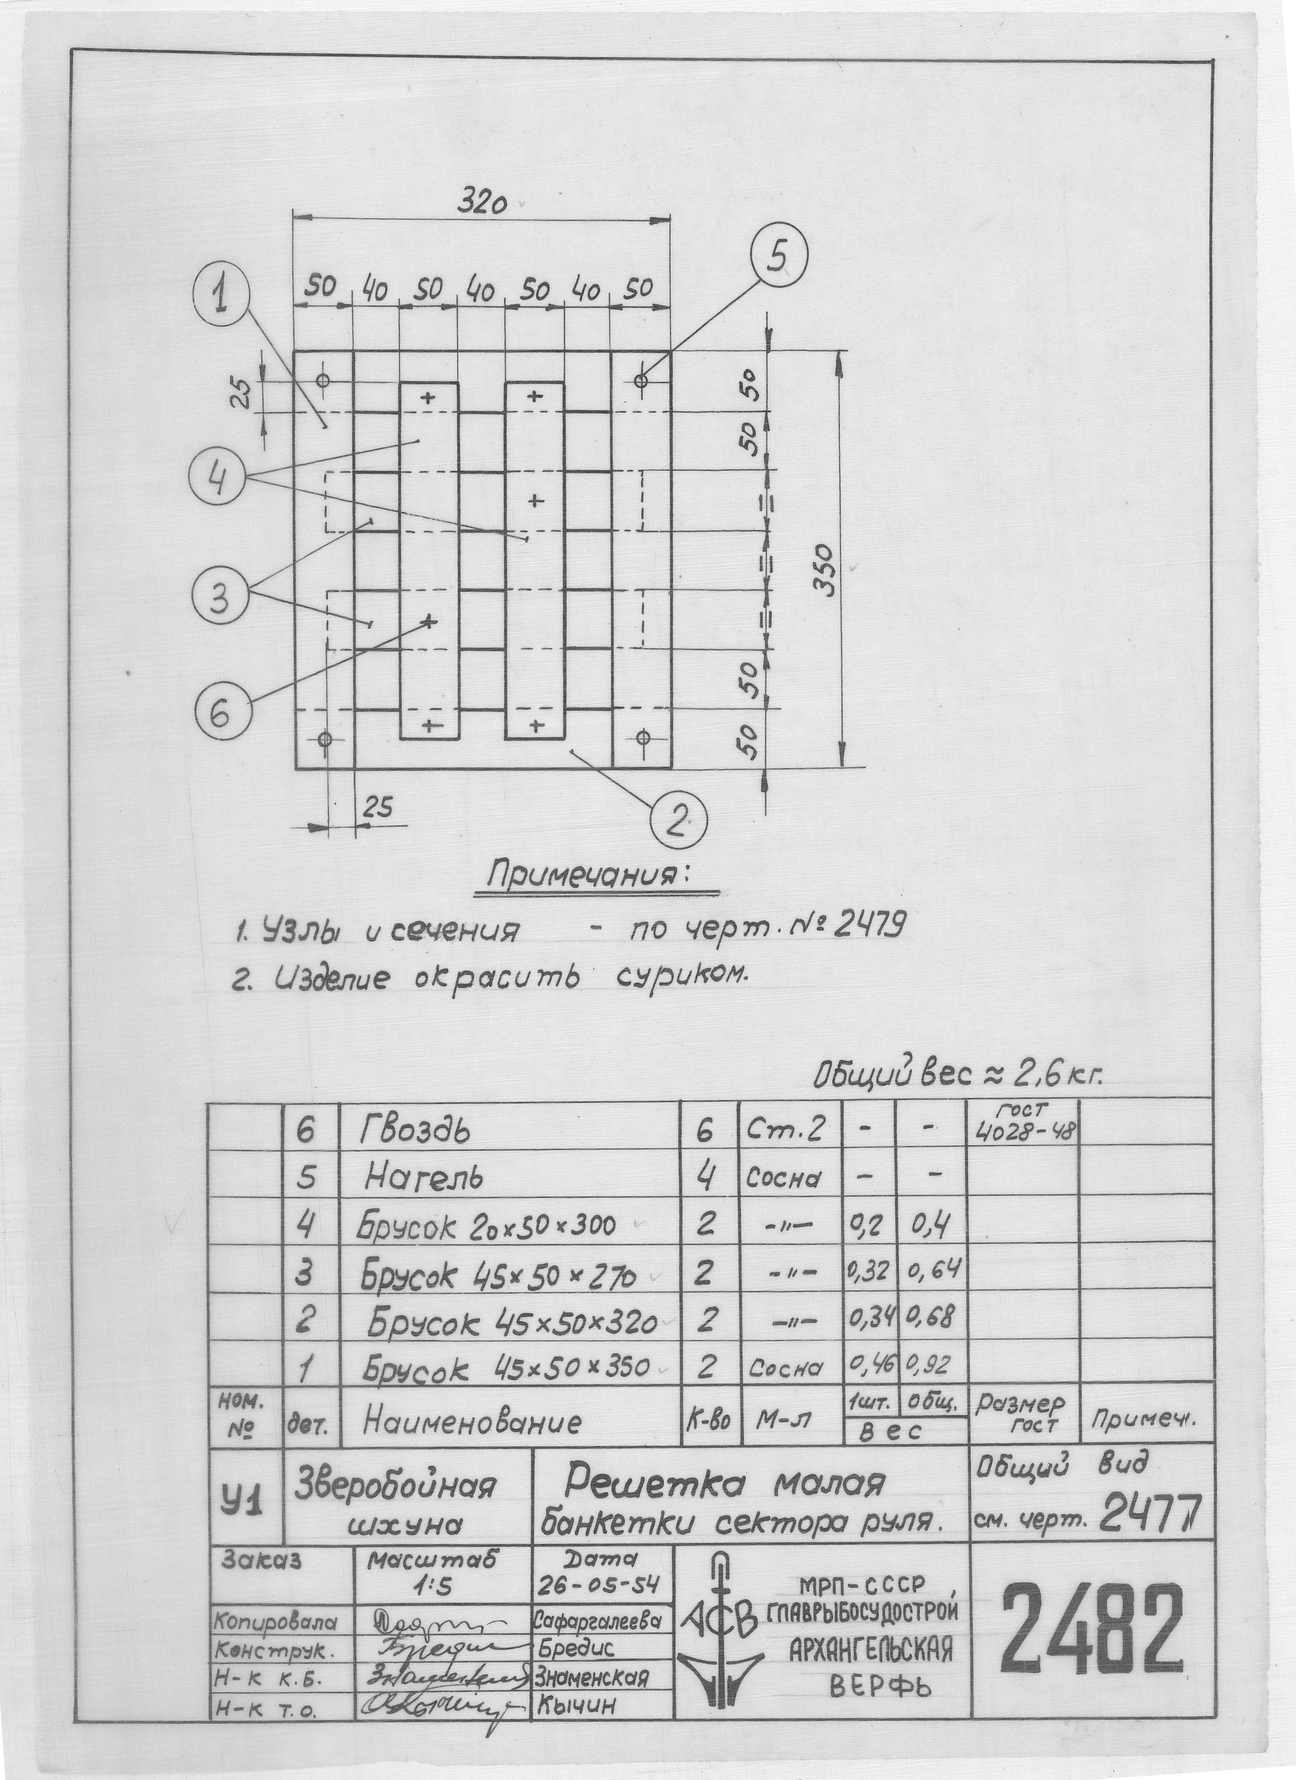 320
50 40 50 40 50 40 50
1
5
25
50
50
4
350
3
6
50
50
25
2
Примечания:
1. Узлы и сечения - по черт. № 2479
2. Изделие окрасить суриком.
Общий вес ≈ 2,6 кг.
6 Гвоздь 6 Ст.2 - - ГОСТ 4028-48
5 Нагель 4 Сосна - -
4 Брусок 20×50×300 2 -"- 0,2 0,4
3 Брусок 45×50×270 2 -"- 0,32 0,64
2 Брусок 45×50×320 2 -"- 0,34 0,68
1 Брусок 45×50×350 2 Сосна 0,46 0,92
НОМ. № дет. Наименование К-во М-л 1шт. Общ. Вес Размер ГОСТ Примеч.
У1 Зверобойная шхуна
Решетка малая
банкетки сектора руля.
Общий вид
см. черт. 2477
Заказ
Масштаб
1:5
Дата
26-05-54
Копировала Сафаргалеева
Конструк. Бредис Бредис
Н-к К.Б. Знаменская
Н-к Т.О. Кычин
АСВ
МРП-СССР,
ГЛАВРЫБОСУДОСТРОЙ
АРХАНГЕЛЬСКАЯ
ВЕРФЬ
2482